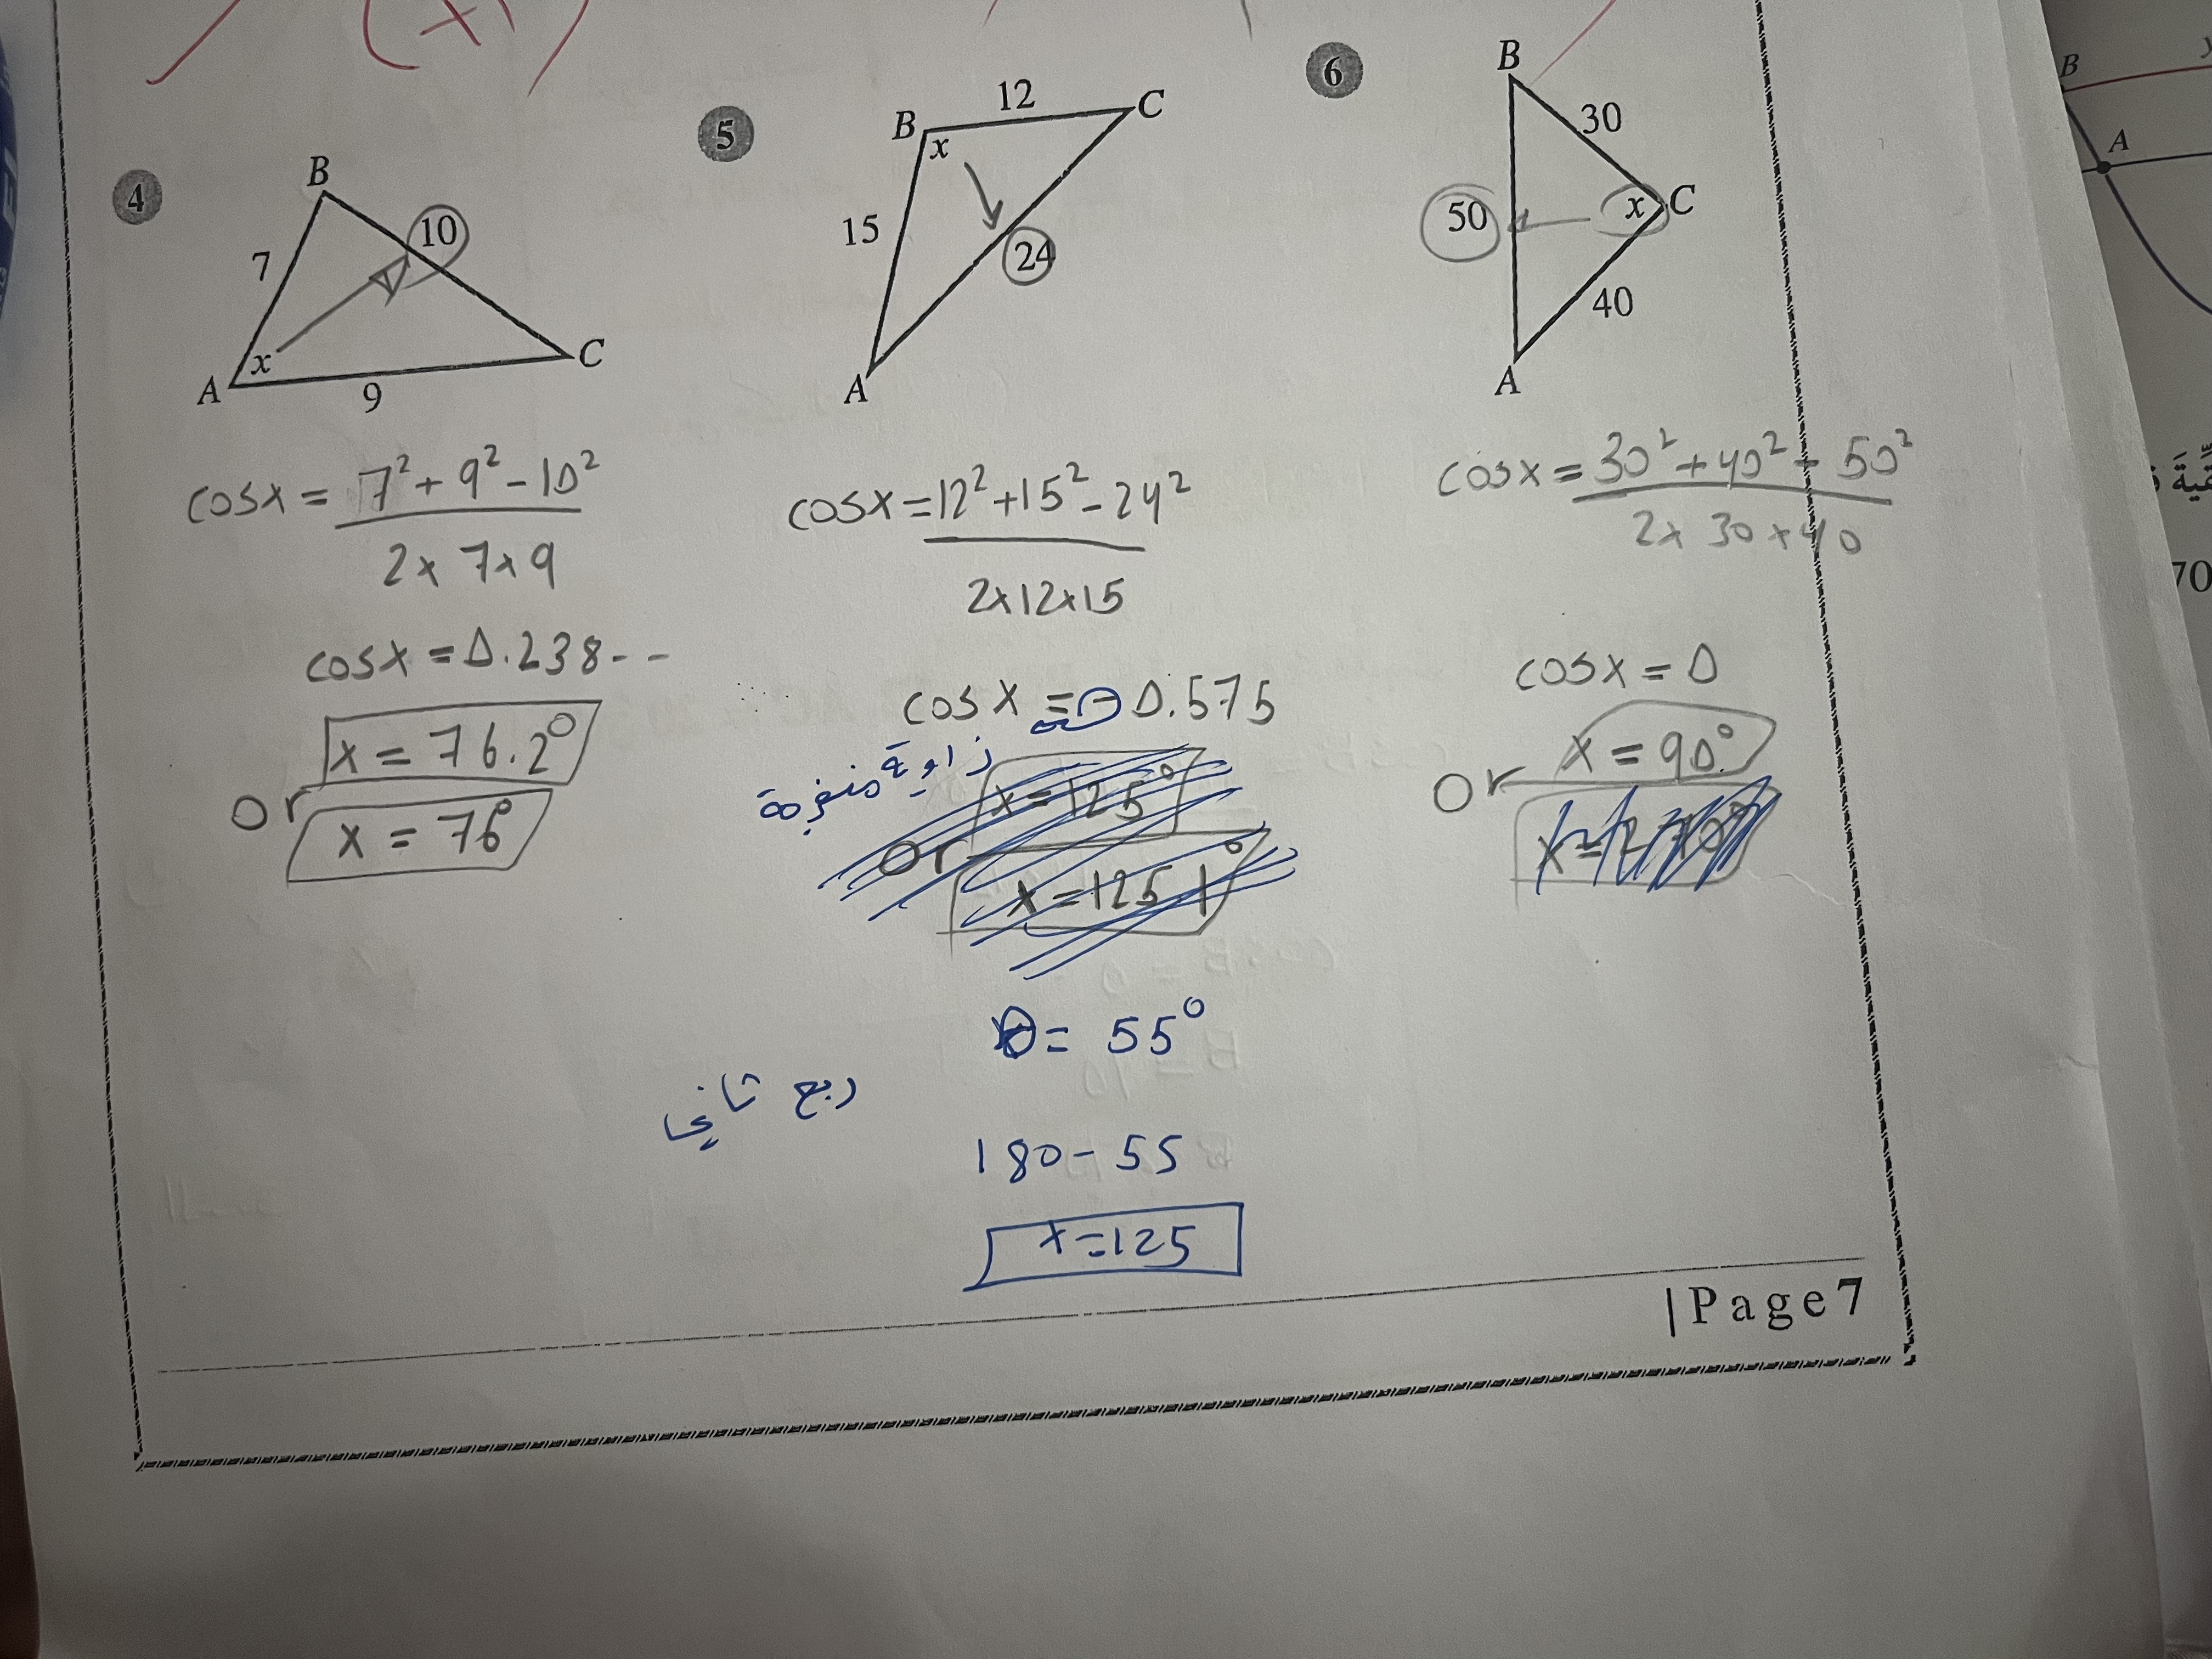 (x)
4
B
7
10
x
A
9
C
cosx = 7² + 9² - 10²
2 x 7 x 9
cosx = 0.238--
x = 76.2°
or
x = 76°
5
12
B
C
x
15
24
A
cosx = 12² + 15² - 24²
2x12x15
cosx = - 0.575
زاوية منفرجة
x = 125°
or
x = 125.1°
θ = 55°
ربع ثاني
180 - 55
x = 125
6
B
30
50
x
C
40
A
cosx = 30² + 40² - 50²
2 x 30 x 40
cosx = 0
x = 90°
or
| Page 7
B
A
70